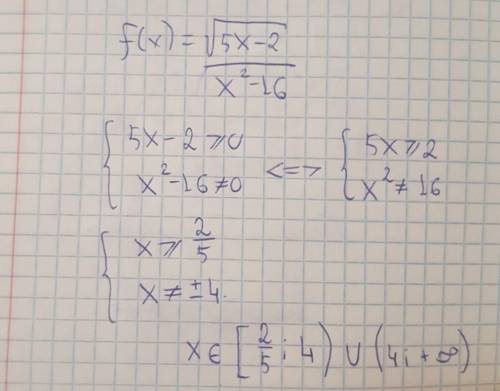 f(x) = √(5x-2) / (x²-16)
{ 5x-2 ⩾ 0 <=> { 5x ⩾ 2
x²-16 ≠ 0 x² ≠ 16
{ x ⩾ 2/5
x ≠ ±4.
x ∈ [2/5; 4) ∪ (4; +∞)